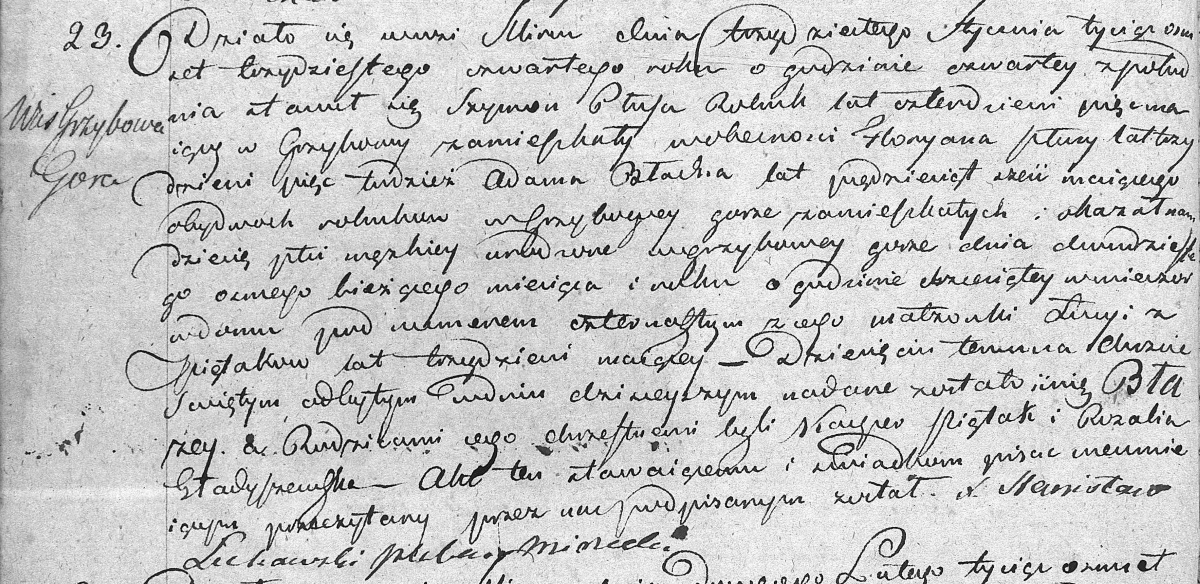 23. Działo się w wsi Mircu dnia trzydziestego Stycznia tysiąc osm
set trzydziestego czwartego roku o godzinie czwartey z połud
Wieś Grzybowa
nia stawił się Szymon Ptusa Rolnik lat czterdzieści pięć ma
iący w Grzybowy zamieszkały w obecności Floryana ptusy lat trzy
Gora
dzieści pięć tudzież Adama Błacha lat piędziesiąt sześć maiącego
obydwoch rolnikow w Grzybowey gorze zamieszkałych i okazał nam
dziecię płci męzkiey urodzone w grzybowey gorze dnia dwudzieste
go osmego bieżącego miesiąca i roku o godzinie dziesiątey w wieczor
w domu pod numerem czternastym z iego małżonki Łucyi z
Piętakow lat trzydzieści maiącey — Dziecięciu temu na chrzcie
świętym odbytym w dniu dzisieyszym nadane zostało imię Bła
żey. & Rodzicami iego chrzestnemi byli Kacper Piętak i Rozalia
Gładyszewska — Akt ten stawaiącemu i świadkom pisać nieumie
iącym przeczytany przez nas podpisanym został. X. Stanisław
Łukawski pleban Mirecki
Lutego tysiąc osmset